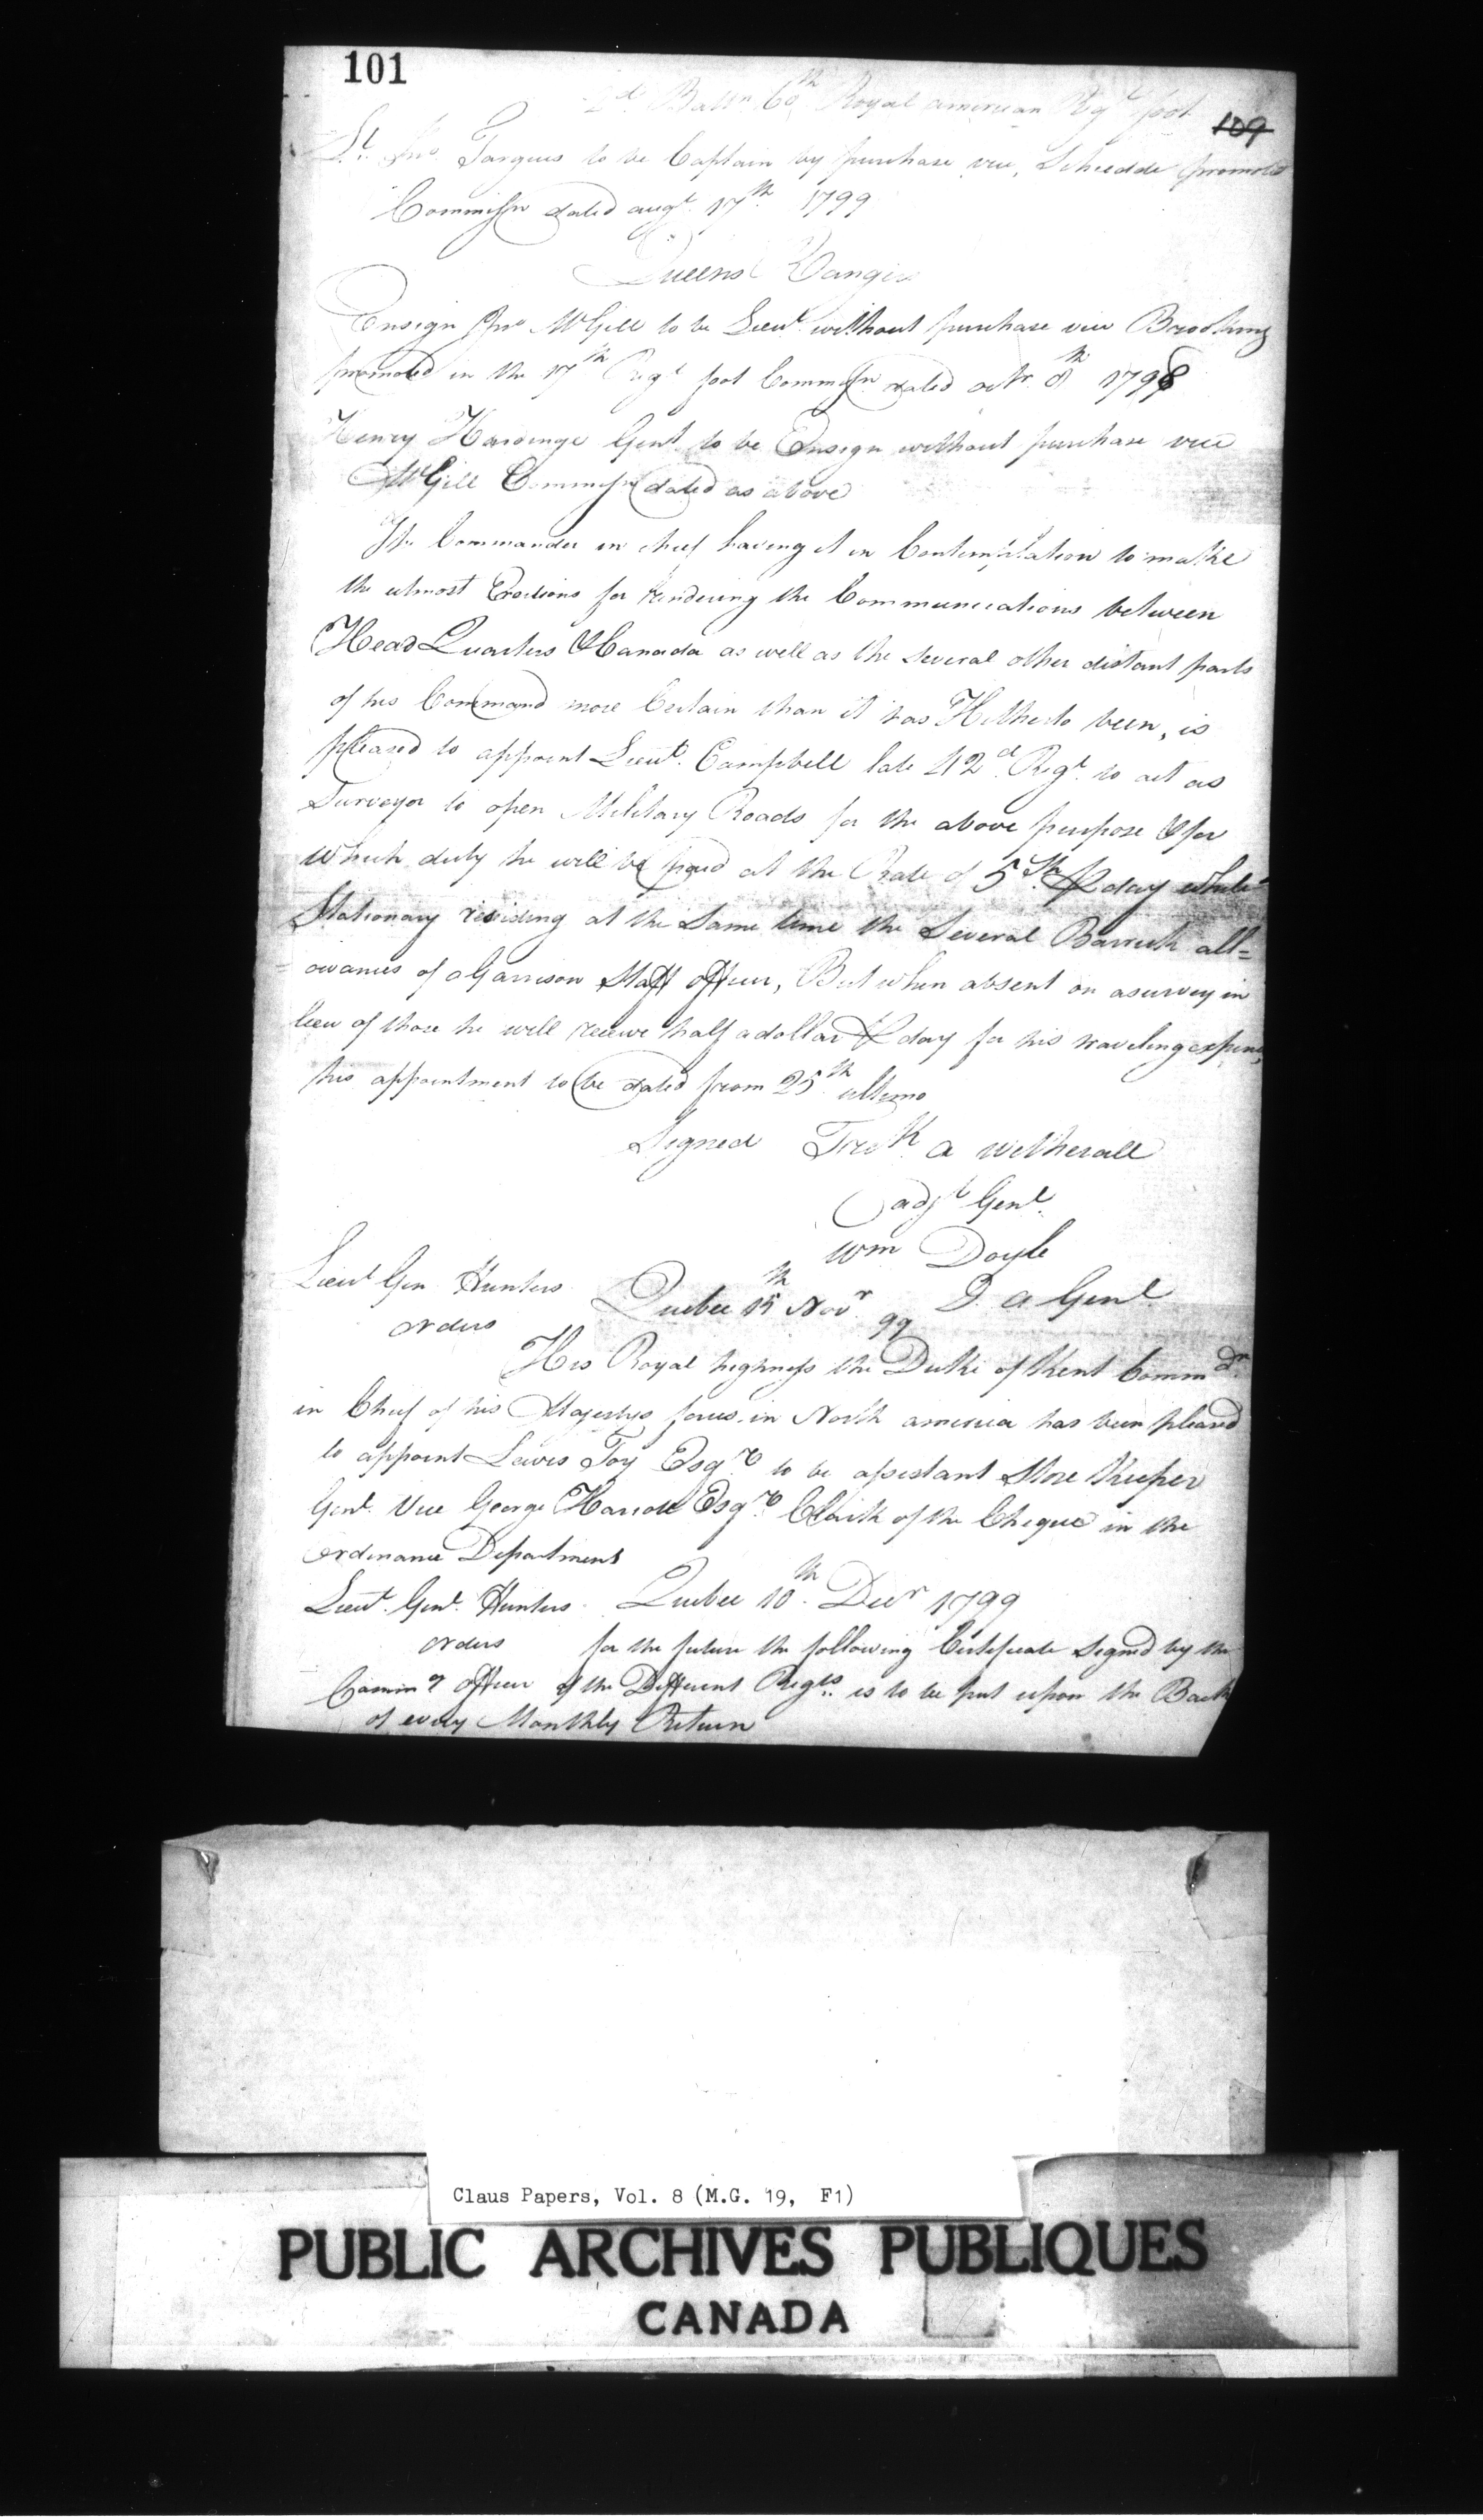 101
2d Battn 60th Royal american Regt foot
109
Lt Jno Targues to be Captain by purchase vice, Schiedde promoted
Commissn dated augt 17th 1799
Queens Rangers
Ensign Jno McGill to be Lieut without purchase vice Brooking
promoted in the 17th Regt foot Commissn dated octr 8th 1798
Henry Hardinge Gent to be Ensign without purchase vice
McGill Commissn dated as above
The Commander in cheif having it in Contemplation to make
the utmost Exertions for rendering the Communications between
Head Quarters & Canada as well as the several other distant parts
of his Command more Certain than it has Hitherto been, is
pleased to appoint Lieut. Campbell late 42d Regt to act as
Surveyor to open Military Roads for the above purpose & for
which duty he will be paid at the Rate of 5Sh ⅌ day while
Stationary residing at the same time the several Barrack all=
=owances of a Garrison Staff officer, But when absent on a survey in
lieu of those he will receive half a dollar ⅌ day for his traveling expence
his appointment to be dated from 25th ultimo
Signed Fredk a Witherall
adjt Genl.
Wm Doyle
D. a Genl
Lieut Gen Hunters
orders
Quebec 15th Novr 99
His Royal highness the Duke of Kent Commdr
in Cheif of his Majestys forces in North america has been pleased
to appoint Lewis Foy Esqre to be assistant Store Keeper
Genl. Vice George Esqre Clerk of the Cheque in the
ordinance Department
Lieut. Genl. Hunters Quebec 10th Decr 1799
orders for the future the following Certificate signed by the
Commg officer of the Different Regts is to be put upon the Back
of every Monthly Return
Claus Papers, Vol. 8 (M.G. 19, F1)
PUBLIC ARCHIVES PUBLIQUES
CANADA